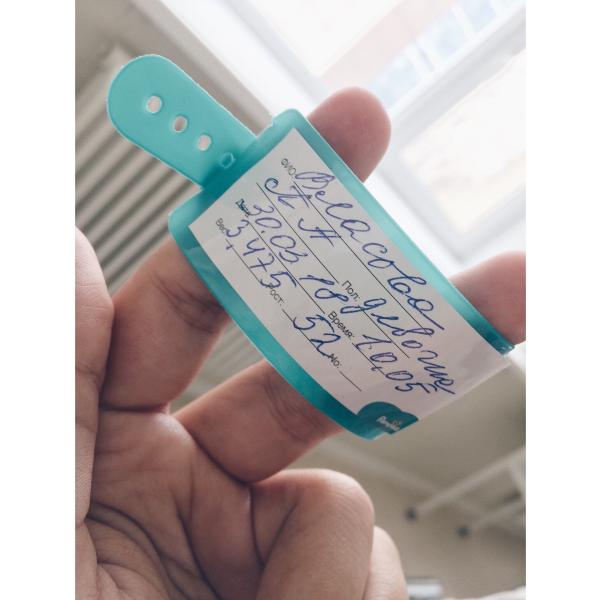 ФИО: Власова
А А Пол: девочка
Дата: 30.03 18 Время: 10,05
Вес: 3,475 Рост: 52 No:
Pampers